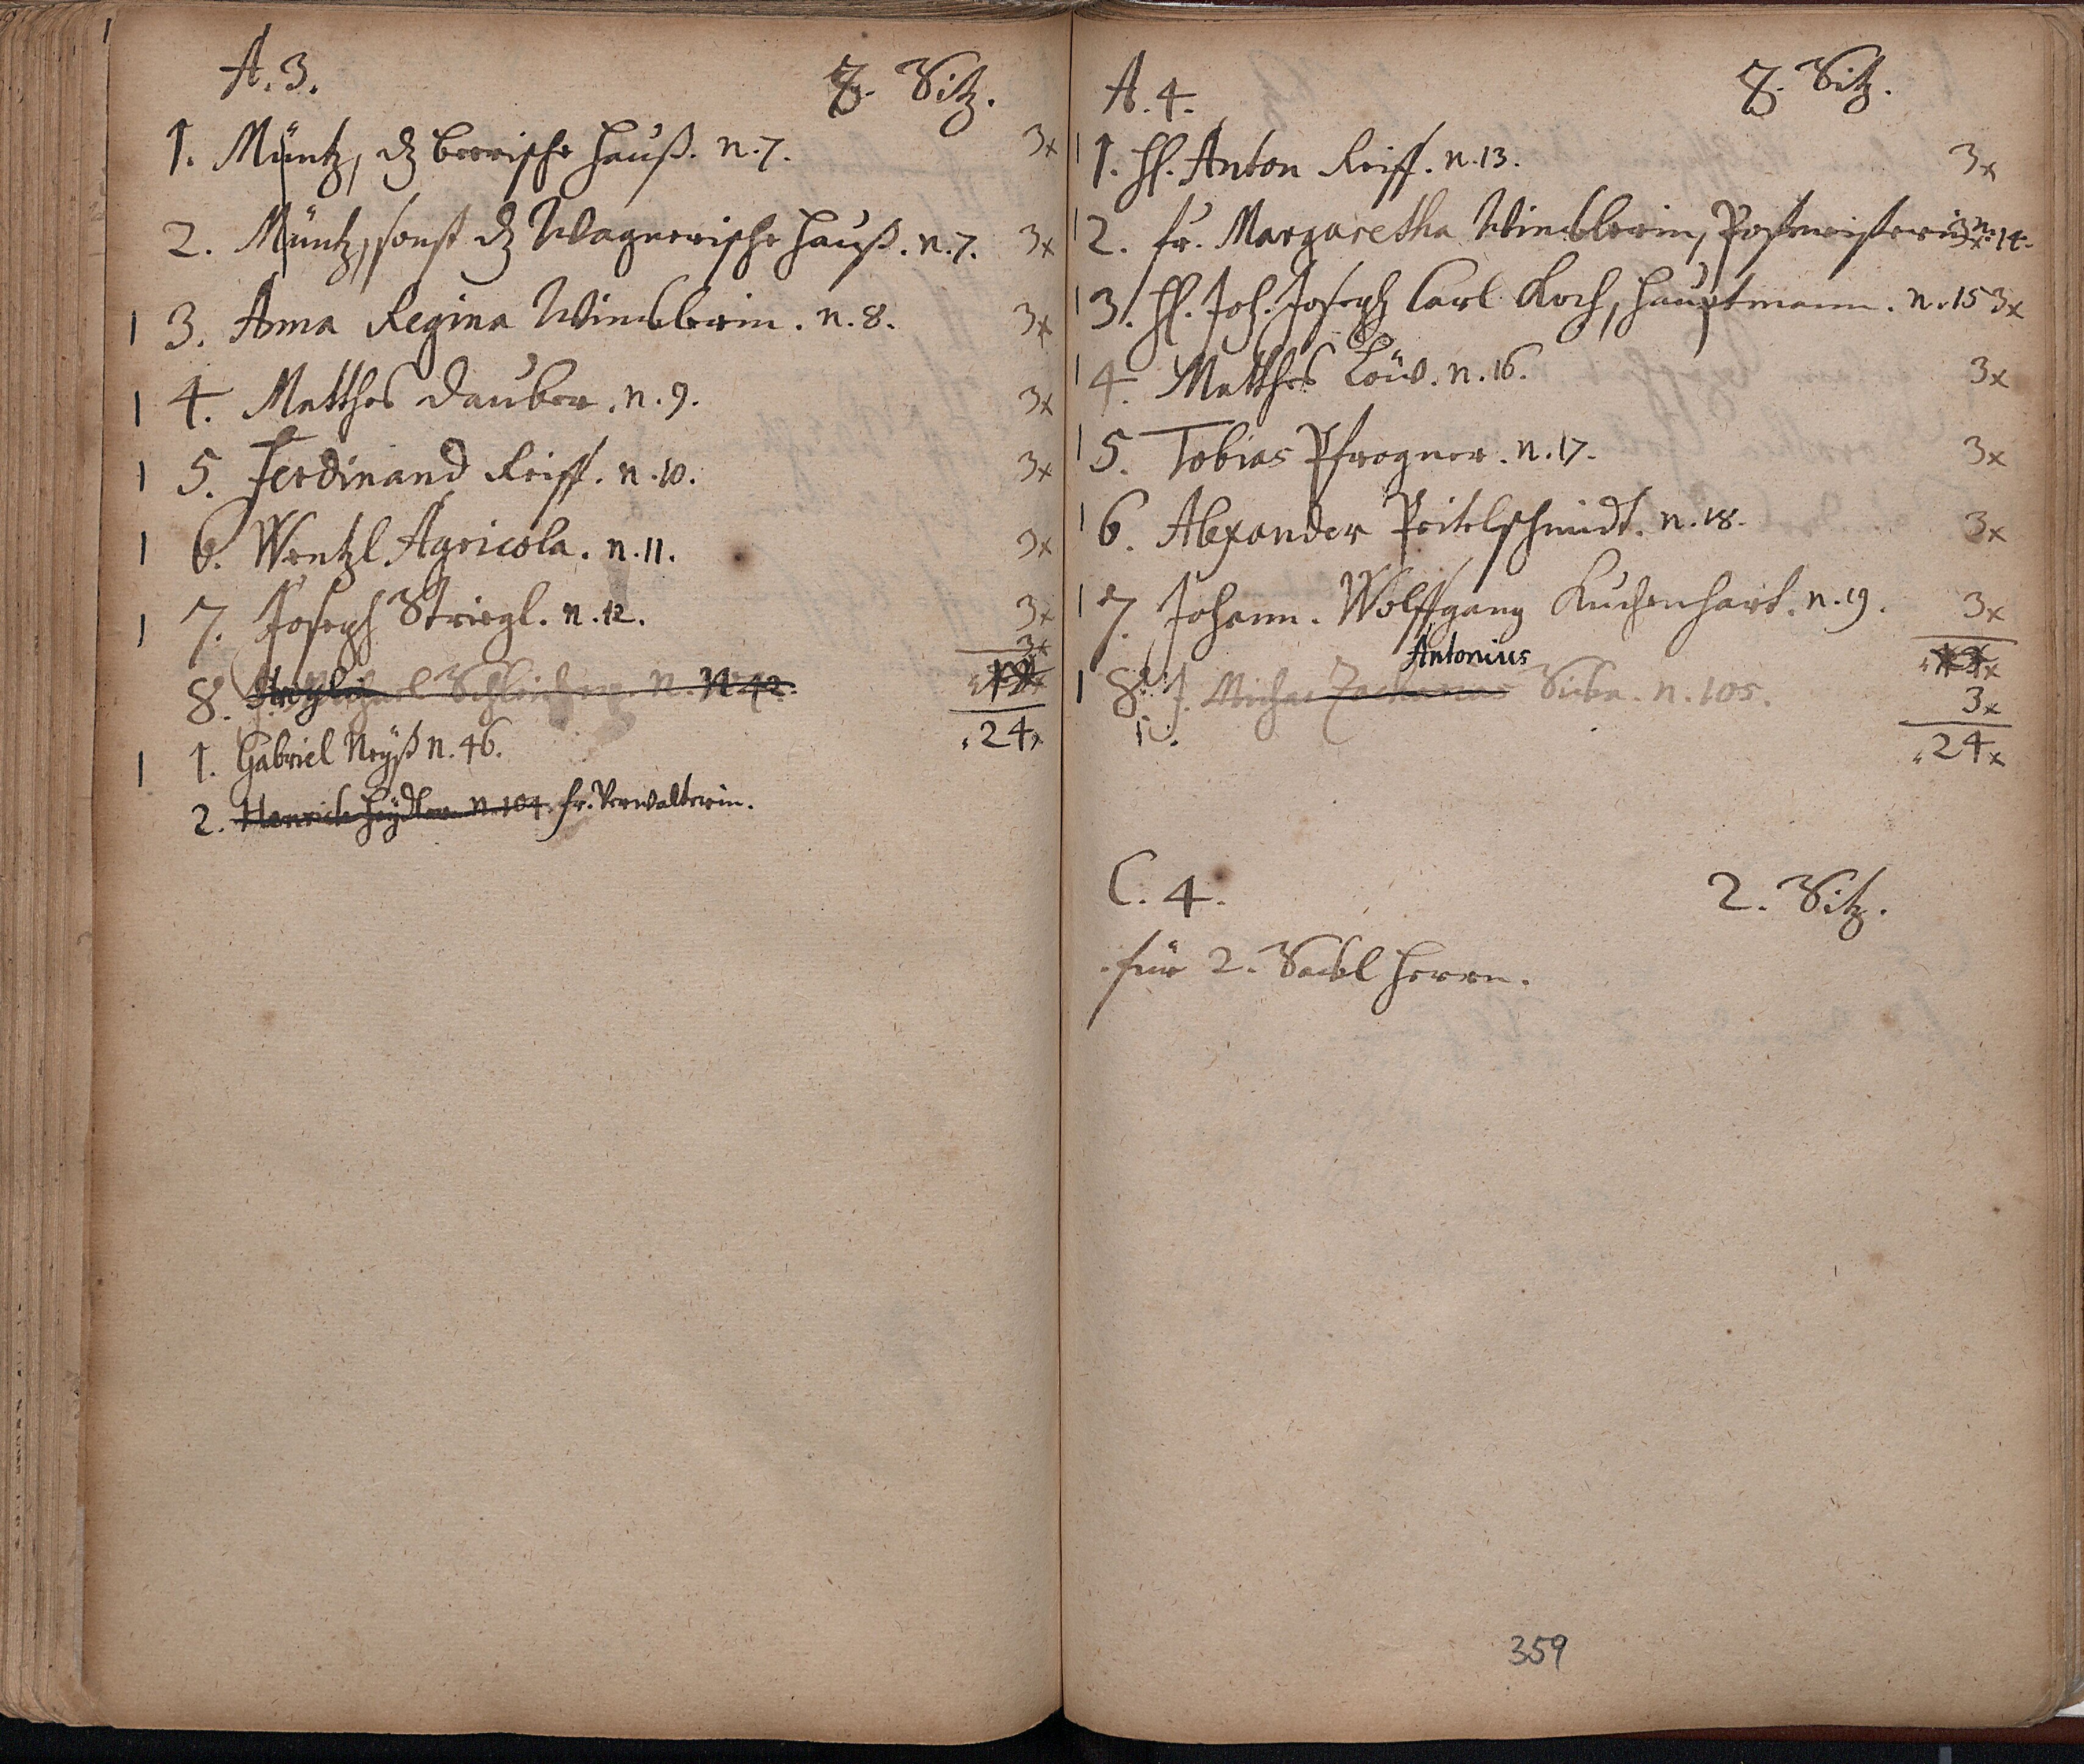 A. 3. 8. Sitz.
1. Müntz, dz beerische Hauß. n. 7. 3x
2. Müntz, sonst dz Wagnerische Hauß. n. 7. 3x
3. Anna Regina Windlerin. n. 8. 3x
4. Matthes Dauber. n. 9. 3x
5. Ferdinand Reiff. n. 10. 3x
6. Wentzl Agricola. n. 11. 3x
7. Joseph Striegl. n. 12. 3x
3x
8. n. 42.
24x
1. Gabriel Neyß n. 46.
2. Henrich Heydler n. 104. fr. Verwalterin.
A. 4. 8. Sitz.
1. H. Anton Reiff. n. 13. 3x
2. fr. Margaretha Windlerin, Postmeisterin n. 14. 3x
3. H. Joh. Joseph Carl Koch, Hauptmann. n. 15 3x
4. Matthes Löw. n. 16. 3x
5. Tobias Pfrogner. n. 17. 3x
6. Alexander Peitelschmidt. n. 18. 3x
7. Johann. Wolffgang Kuchenhart. n. 19. 3x
Antonius
8. J. Michae Zacharias n. 105. 3x
24x
C. 4. 2. Sitz.
für 2. Herrn.
359